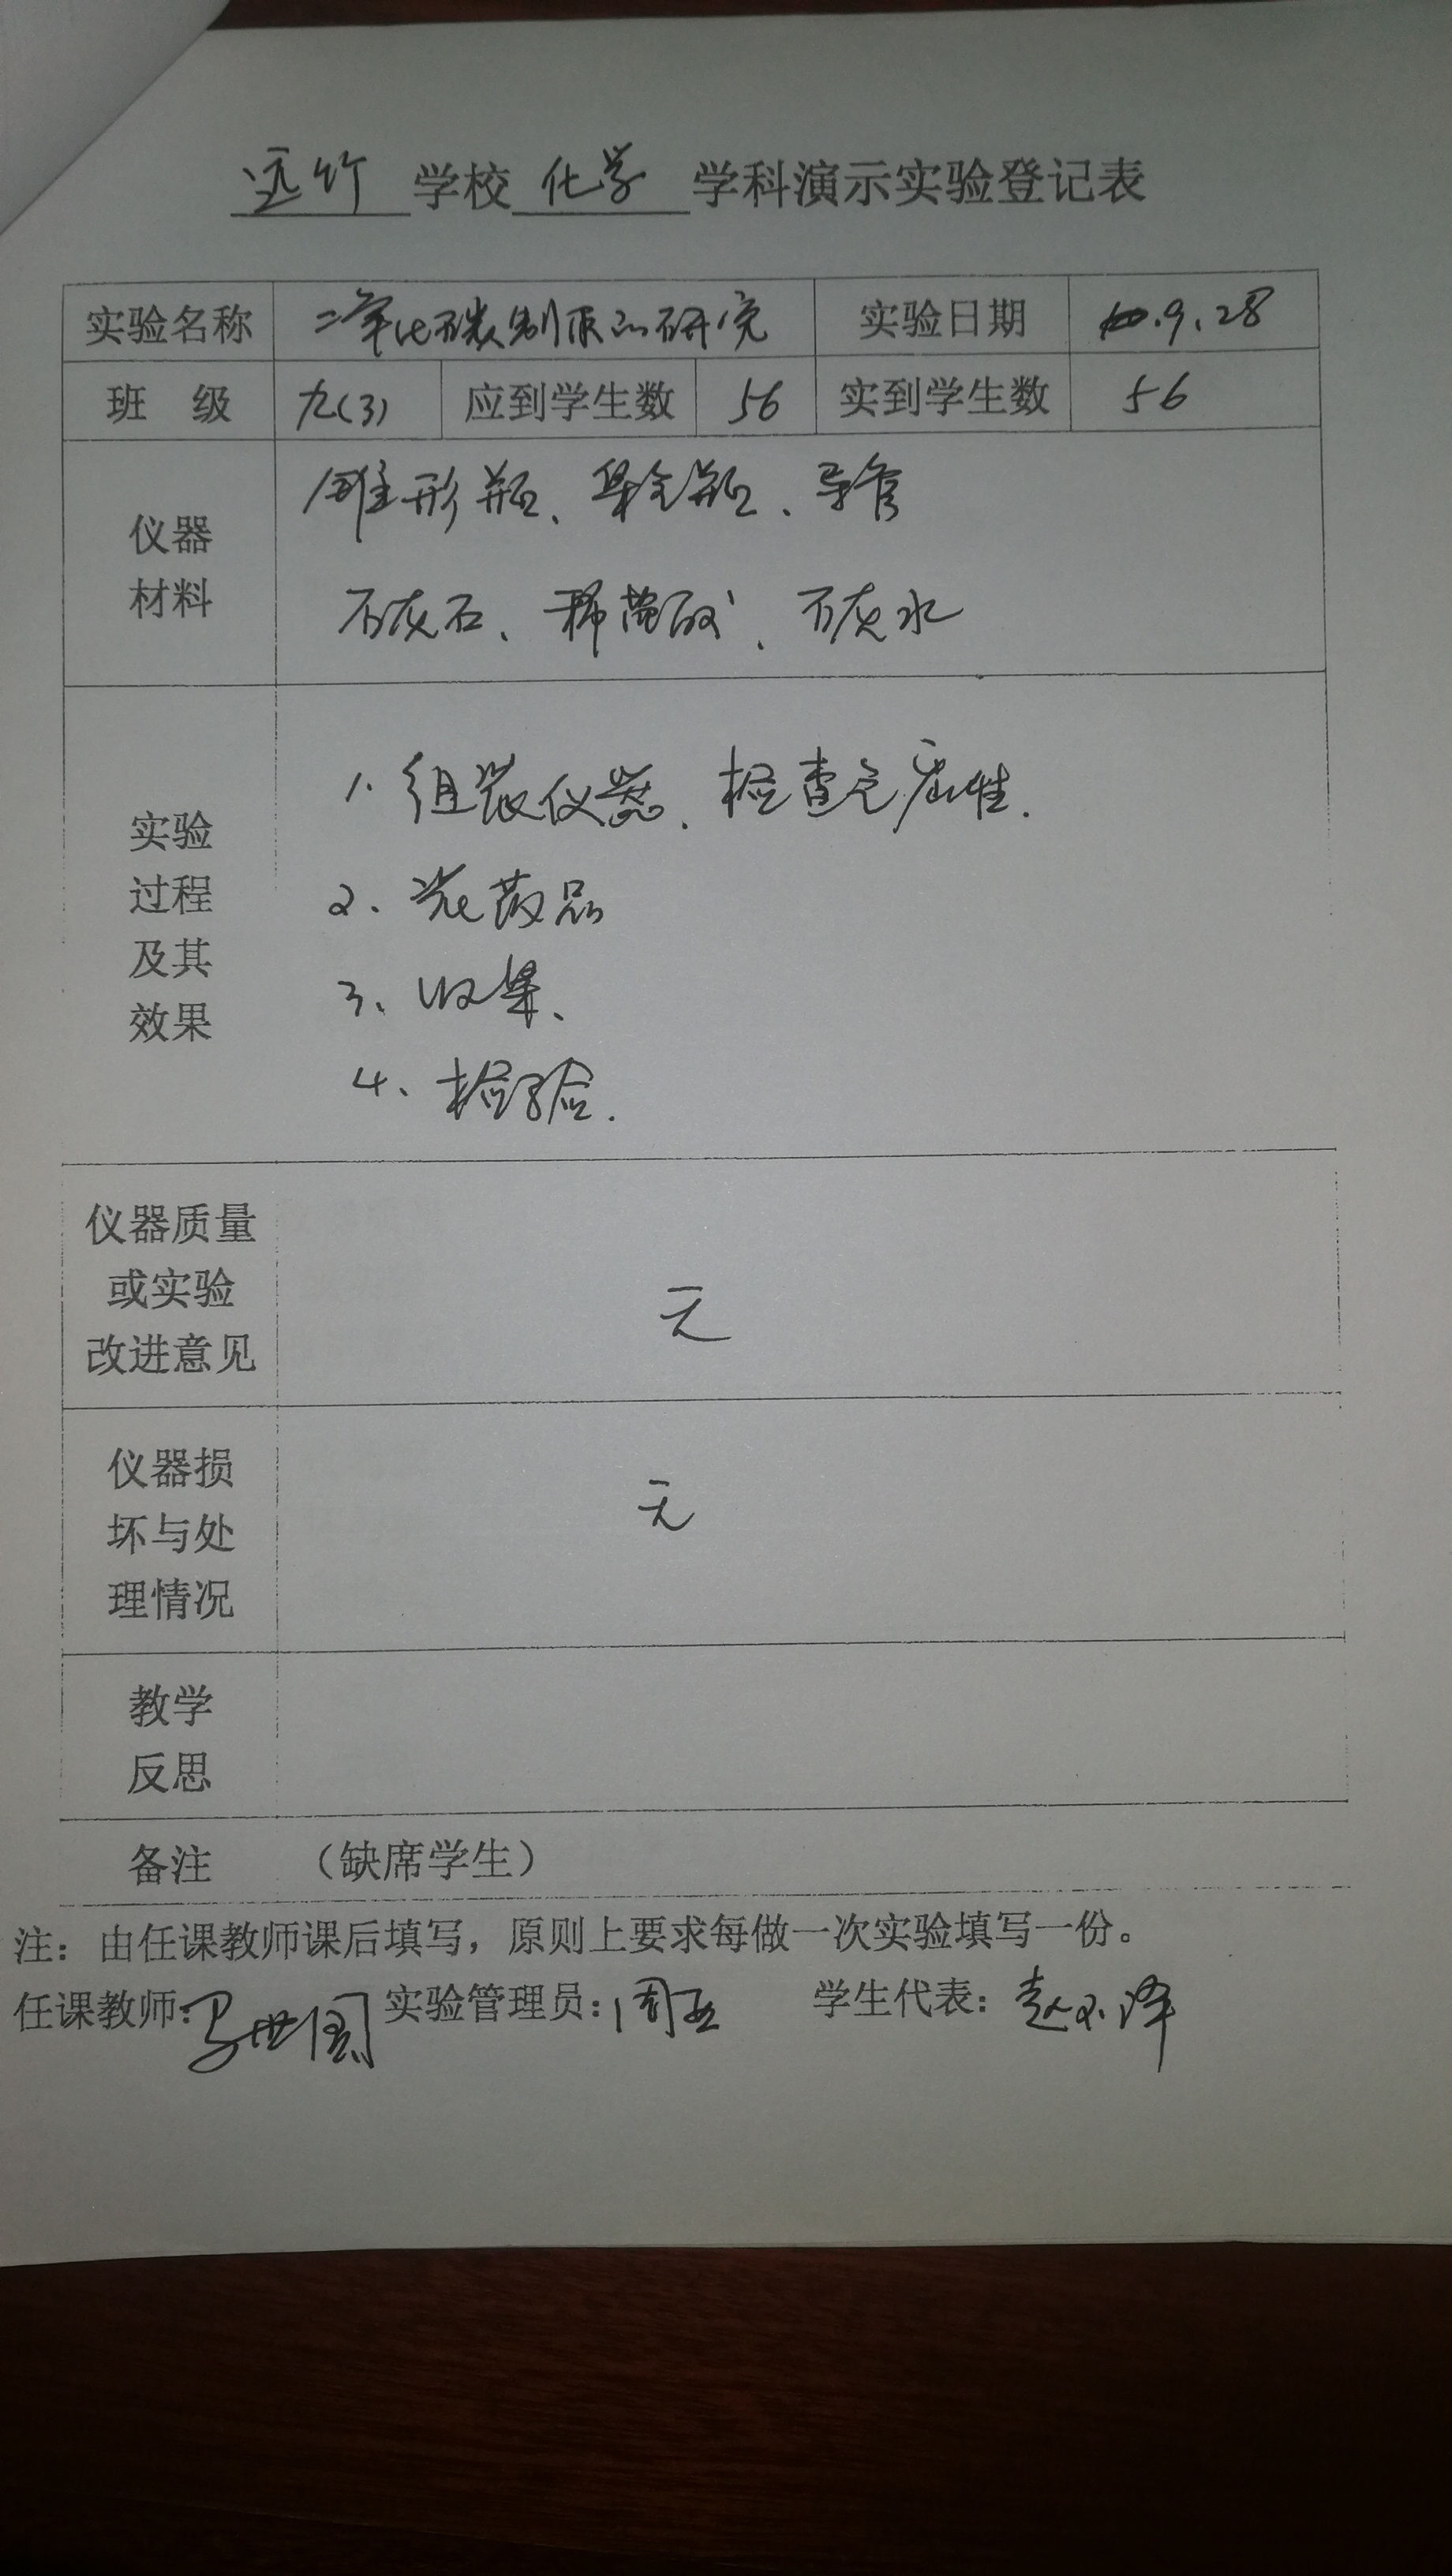 远竹 学校 化学 学科演示实验登记表
实验名称 二氧化碳制取的研究 实验日期 9.28
班 级 九(3) 应到学生数 56 实到学生数 56
锥形瓶、集气瓶、导管
仪器
材料
石灰石、稀盐酸、石灰水
1、组装仪器、检查气密性.
实验
过程
2、装药品
及其
3、收集、
效果
4、检验.
仪器质量
或实验
无
改进意见
仪器损
无
坏与处
理情况
教学
反思
备注 （缺席学生）
注：由任课教师课后填写，原则上要求每做一次实验填写一份。
任课教师: 马世国 实验管理员: 周 学生代表: 赵泽